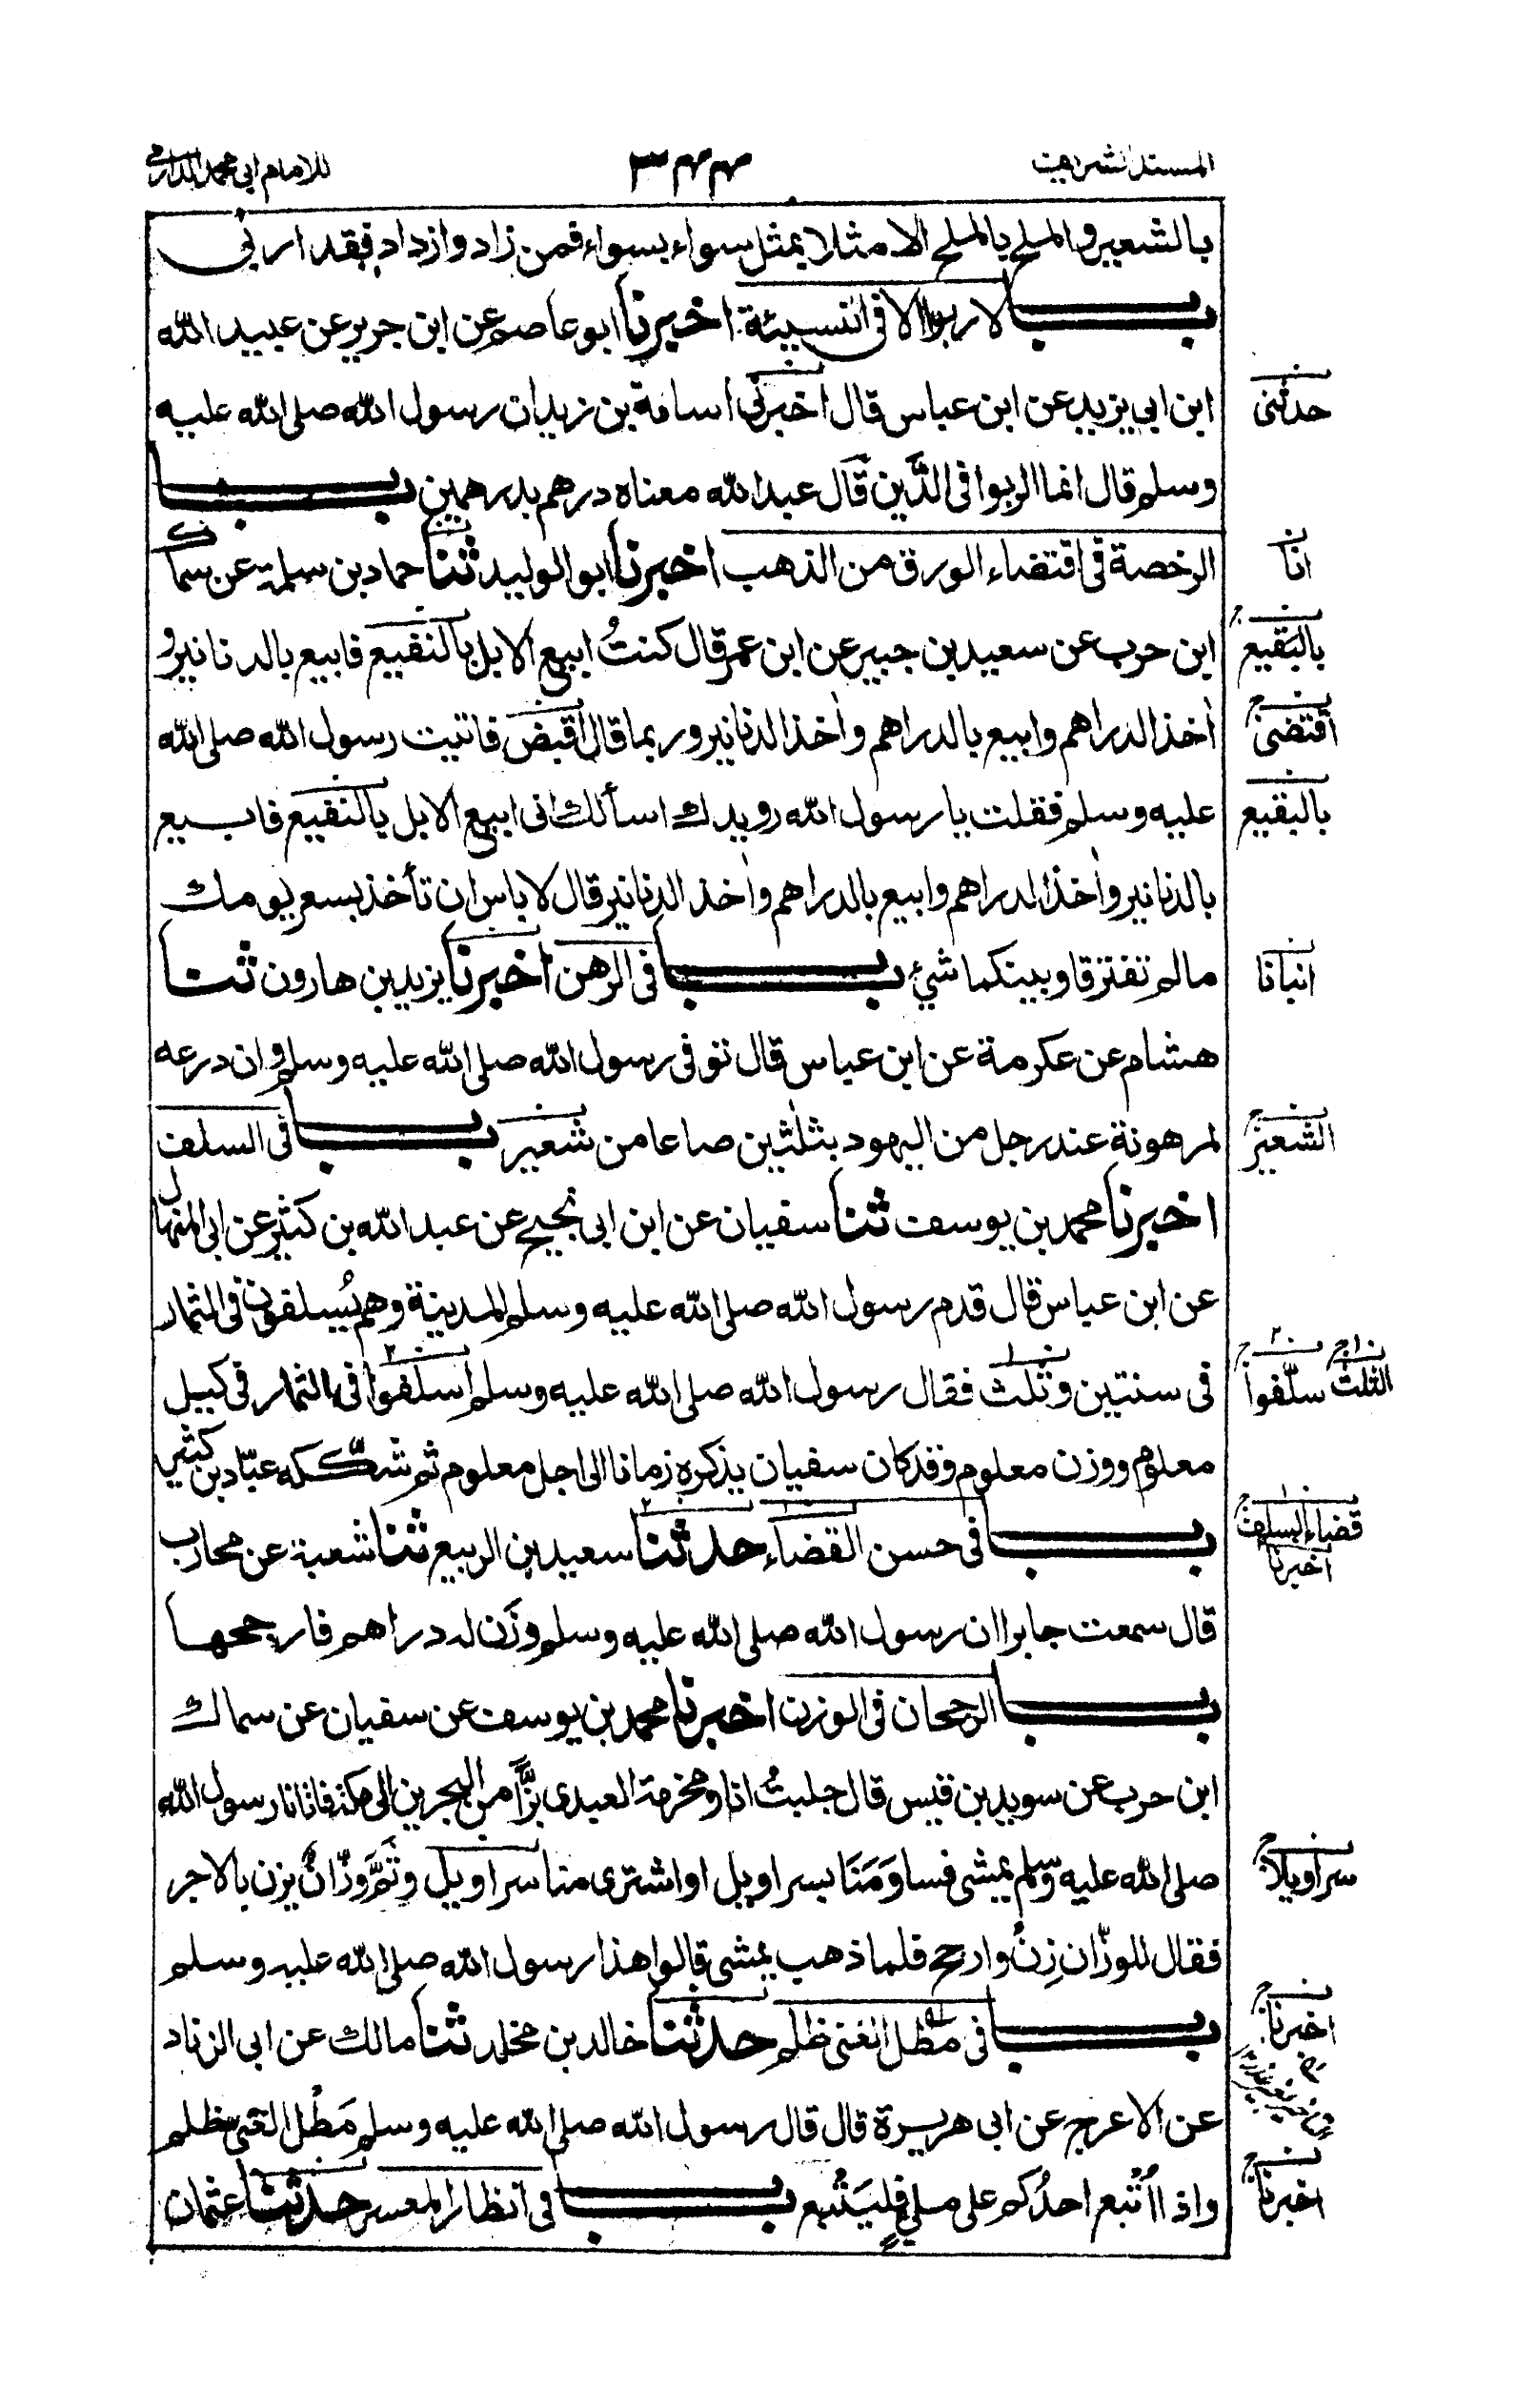 المسند الشريف ٣٤٤ للامام ابي محمد الدارمي
بالشعير والملح بالملح الا مثلا بمثل سواء بسواء فمن زاد وازداد فقد اربى
بــاب لا ربوا الا فى النسيئة اخبرنا ابو عاصم عن ابن جرير عن عبيد الله
ابن ابي يزيد عن ابن عباس قال اخبرني اسامة بن زيد ان رسول الله صلى الله عليه
حدثني
وسلم قال انما الربوا فى الدَّين قَال عبد الله معناه درهم بدرهمين بــاب
الرخصة فى اقتضاء الورق من الذهب اخبرنا ابو الوليد ثنا حماد بن سلمة عن سماك
انا
ابن حرب عن سعيد بن جبير عن ابن عمر قال كنتُ ابيع الابل بالنقيع فابيع بالدنانير و
بالبَقيع
أخذ الدراهم وابيع بالدراهم وأخذ الدنانير وربما قال اقبض فاتيت رسول الله صلى الله
اقتضى
عليه وسلم فقلت يا رسول الله رويدك اسألك انى ابيع الابل بالنقيع فابيع
بالبقيع
بالدنانير وأخذ الدراهم وابيع بالدراهم وأخذ الدنانير قال لا باس ان تأخذ بسعر يومك
مالم تفترقا وبينكما شيئ بــاب فى الرهن اخبرنا يزيد بن هارون ثنا
انبانا
هشام عن عكرمة عن ابن عباس قال توفى رسول الله صلى الله عليه وسلم وان درعه
لمرهونة عند رجل من اليهود بثلثين صاعا من شعير بــاب فى السلف
الشعير
اخبرنا محمد بن يوسف ثنا سفيان عن ابن ابى نجيح عن عبد الله بن كثير عن ابى المنهال
عن ابن عباس قال قدم رسول الله صلى الله عليه وسلم المدينة وهم يُسلفون فى الثمار
فى سنتين وثلث فقال رسول الله صلى الله عليه وسلم اسلفوا فى الثمار فى كيل
الثلث سلّفوا
معلوم ووزن معلوم وقد كان سفيان يذكره زمانا الى اجل معلوم ثم شكّكه عبّاد بن كثير
بــاب فى حسن القضاء حدثنا سعيد بن الربيع ثنا شعبة عن محارب
قضاء السلف
اخبرنا
قال سمعت جابرا ان رسول الله صلى الله عليه وسلم وزَن له دراهم فارجحها
بــاب الرجحان فى الوزن اخبرنا محمد بن يوسف عن سفيان عن سماك
ابن حرب عن سويد بن قيس قال جلبتُ انا ومخرمة العبدى بزًّا من البحرين الى مكة فاتانا رسول الله
صلى الله عليه وسلم يمشى فساوَمَنَا بسراويل او اشترى منا سراويل وثَمَّ وزّانٌ يزن بالاجر
سراويلا
فقال للوزّان زِنْ وارجح فلما ذهب يمشى قالوا هذا رسول الله صلى الله عليه وسلم
بــاب فى مطل الغنى ظلم حدثنا خالد بن مخلد ثنا مالك عن ابى الزناد
اخبرنا
عن الاعرج عن ابى هريرة قال قال رسول الله صلى الله عليه وسلم مَطْل الغنىّ ظلم
واذا اُتْبع احدُكم على ملئٍ فليَتْبع بــاب فى انظار المعسر حدثنا عثمان
اخبرنا